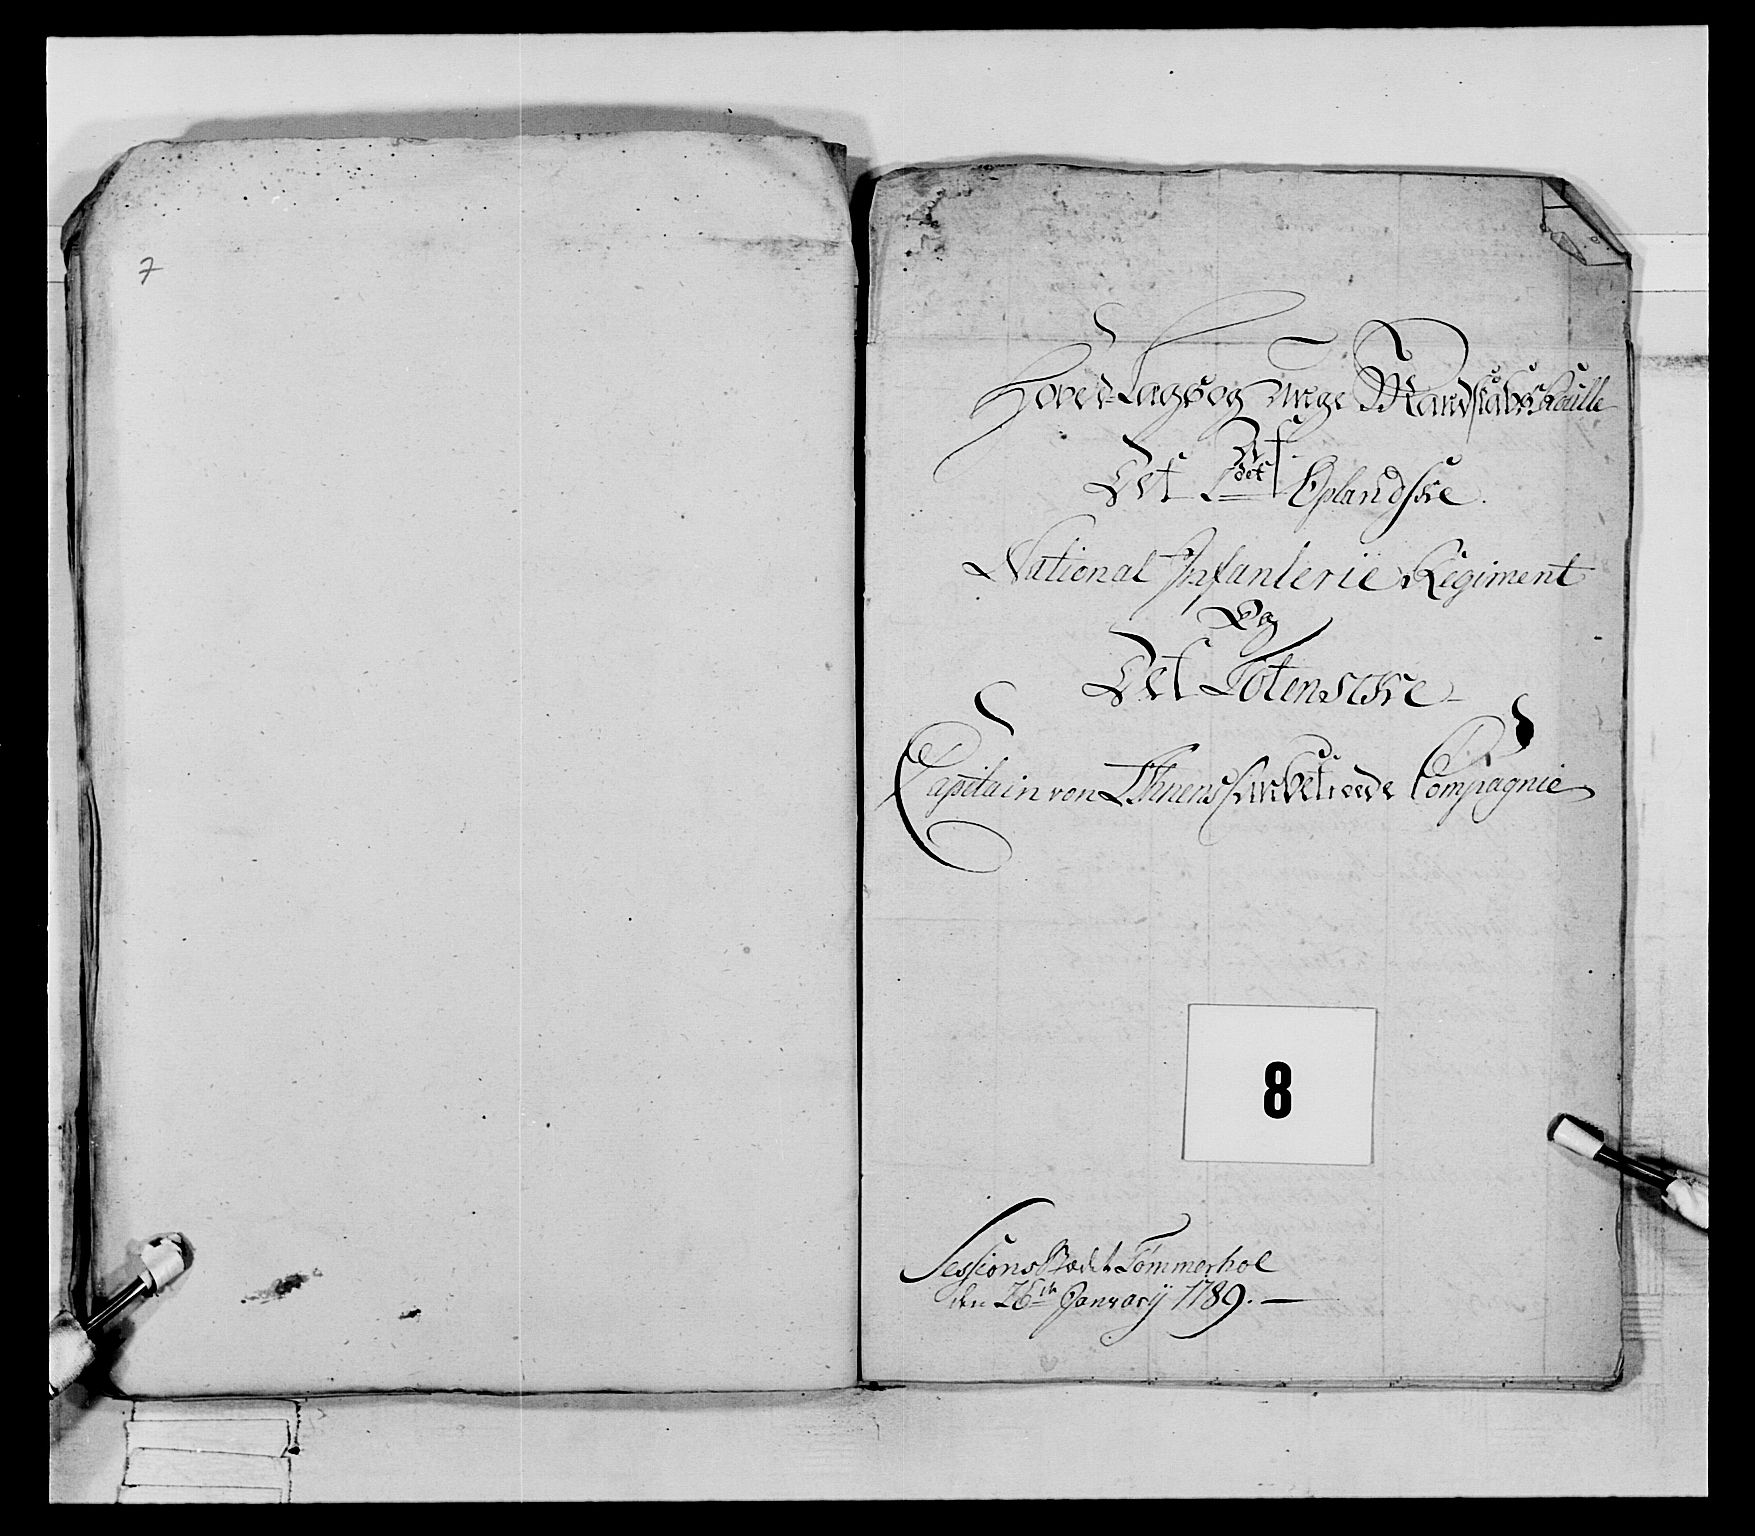 7
Hoved-Lægs og Unge Mandskabs Roulle
Af
Det 1det Oplandske.
National Infanterie Regiment
Og
Det Totenscke
Capitain von Thnens Compagnie
8
Sessions Stædet Tömmerhol
den 26de Januarij 1789. —